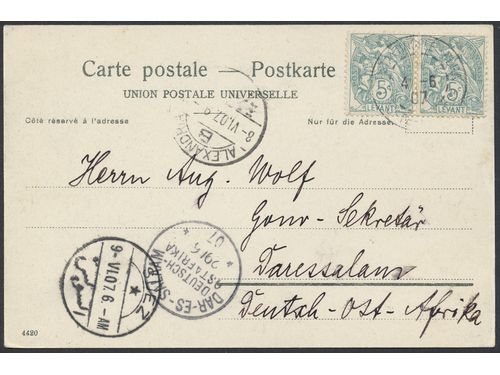 Carte postale — Postkarte
UNION POSTALE UNIVERSELLE
Côté réservé à l'adresse
Nur für die Adresse
5c 5c
LEVANT LEVANT
4 6
07
ALEXANDRIE
8-VI.07
Herrn Aug. Wolf
Gouv-Sekretär
Daressalam
Deutsch-Ost-Afrika
DAR-ES-SALAM
DEUTSCH-
OSTAFRIKA
29/6
07
9-VI.07.6-AM
SUEZ
4420